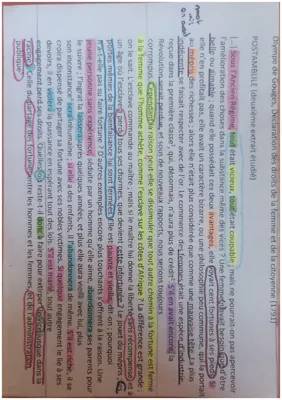 Olympe de Gouges, Déclaration des droits de la femme et de la citoyenne (1791)
POSTAMBULE (deuxième extrait étudié)
[...] Sous l'Ancien Régime, tout était vicieux, tout était coupable ; mais ne pourrait-on pas apercevoir
l'amélioration des choses dans la substance même des vices ? Une femme n'avait besoin que d'être
belle ou aimable ; quand elle possédait ces deux avantages, elle voyait cent fortunes à ses pieds. Si
elle n'en profitait pas, elle avait un caractère bizarre ou une philosophie peu commune, qui la portait
au mépris des richesses ; alors elle n'était plus considérée que comme une mauvaise tête. La plus
indécente se faisait respecter avec de l'or. Le commerce des femmes était une espèce d'industrie
reçue dans la première classe, qui, désormais, n'aura plus de crédit. S'il en avait encore, la
Révolution serait perdue, et sous de nouveaux rapports, nous serions toujours
corrompus. Cependant la raison peut-elle se dissimuler que tout autre chemin à la fortune est fermé
à la femme que l'homme achète comme l'esclave sur les côtes d'Afrique ? La différence est grande ;
on le sait. L'esclave commande au maître ; mais si le maître lui donne la liberté sans récompense, et à
un âge où l'esclave a perdu tous ses charmes, que devient cette infortunée ? Le jouet du mépris ;
les portes mêmes de la bienfaisance lui sont fermées ; elle est pauvre et vieille, dit-on ; pourquoi
n'a-t-elle pas su faire fortune ? D'autres exemples encore plus touchants s'offrent à la raison. Une
jeune personne sans expérience, séduite par un homme qu'elle aime, abandonnera ses parents pour
le suivre ; l'ingrat la laissera après quelques années, et plus elle aura vieilli avec lui, plus
son inconstance sera inhumaine ; si elle a des enfants, il l'abandonnera de même. S'il est riche, il se
croira dispensé de partager sa fortune avec ses nobles victimes. Si quelque engagement le lie à ses
devoirs, il en violera la puissance en espérant tout des lois. S'il est marié, tout autre
engagement perd ses droits. Quelles lois reste-t-il donc à faire pour extirper le vice jusque dans la
racine ? Celle du partage des fortunes entre les hommes et les femmes, et de l'administration
publique.